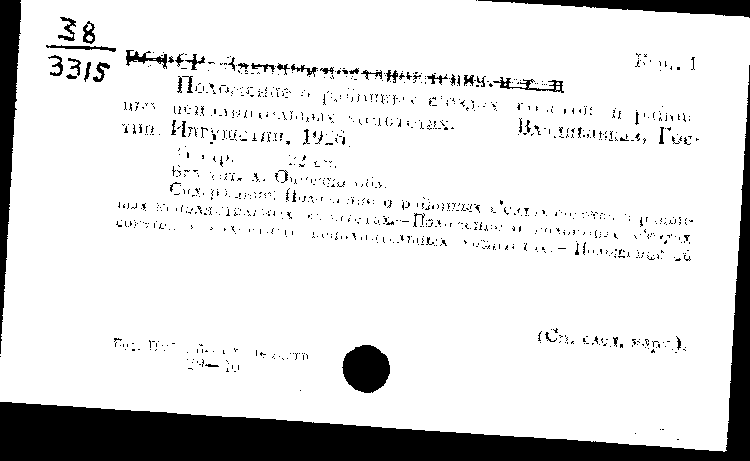 38
3315
РСФСР. Законы и постановления. и т. п
Положение о районных съездах советов и район-
ных исполнительных комитетах. Владикавказ, Гос-
тип. Ингушетии, 1926.
22 см.
Без тит. л. Описано обл.
Содержание: Положение о районных съездах советов и район-
ных исполнительных комитетах.—Положение о волостных съездах
советов и волостных исполнительных комитетах.— Положение об
(См. след. карт.).
29—10